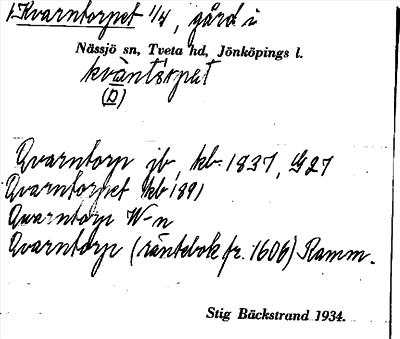 1. Kvarntorpet 1/4, gård i
Nässjö sn, Tveta hd, Jönköpings l.
kväntǝrpat
(D)
Qvarntorp jb, kb. 1837, G27
Qvarntorpet kb 1891
Qvarntorp W-n
Qvarntorp (räntebok fr. 1606) Ramm.
Stig Bäckstrand 1934.